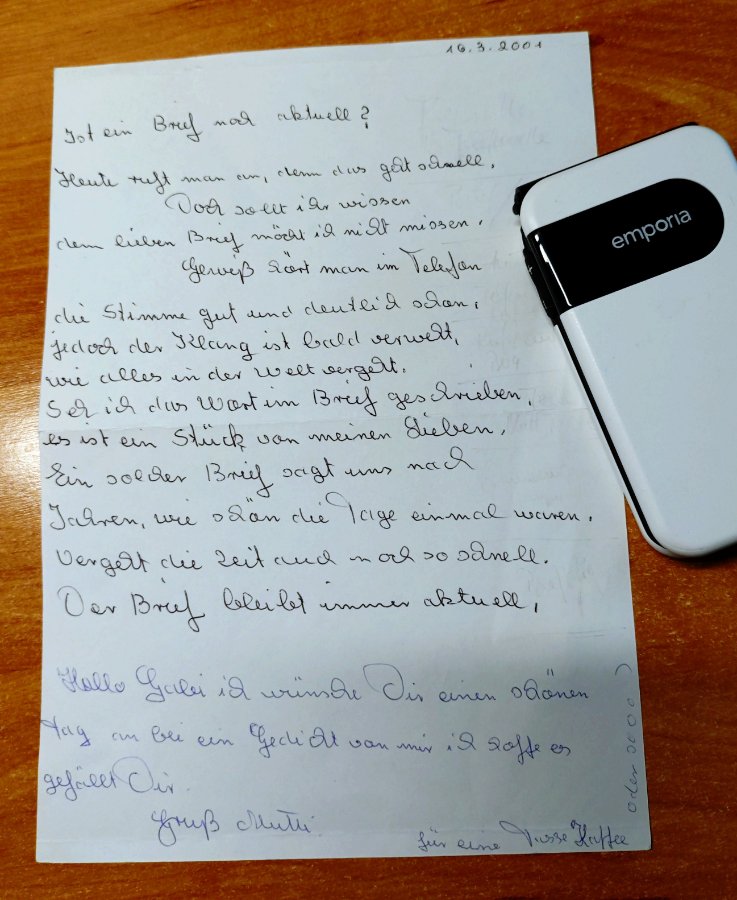 16.3.2001
Ist ein Brief noch aktuell?
Heute ruft man an, denn das geht schnell,
Doch sollt ihr wissen
dem lieben Brief möcht ich nicht missen.
Gewiß hört man im Telefon
die Stimme gut und deutlich schon,
jedoch der Klang ist bald verweht,
wie alles in der Welt vergeht.
Seh ich das Wort im Brief geschrieben,
es ist ein Stück von meinen Lieben,
Ein solcher Brief sagt uns nach
Jahren, wie schön die Tage einmal waren.
Vergeht die Zeit auch noch so schnell.
Der Brief bleibt immer aktuell,
Hallo Gabi ich wünsche Dir einen schönen
Tag an bei ein Gedicht von mir ich hoffe es
gefällt Dir.
Gruß Mutti.
für eine Tasse Kaffee
oder
emporia